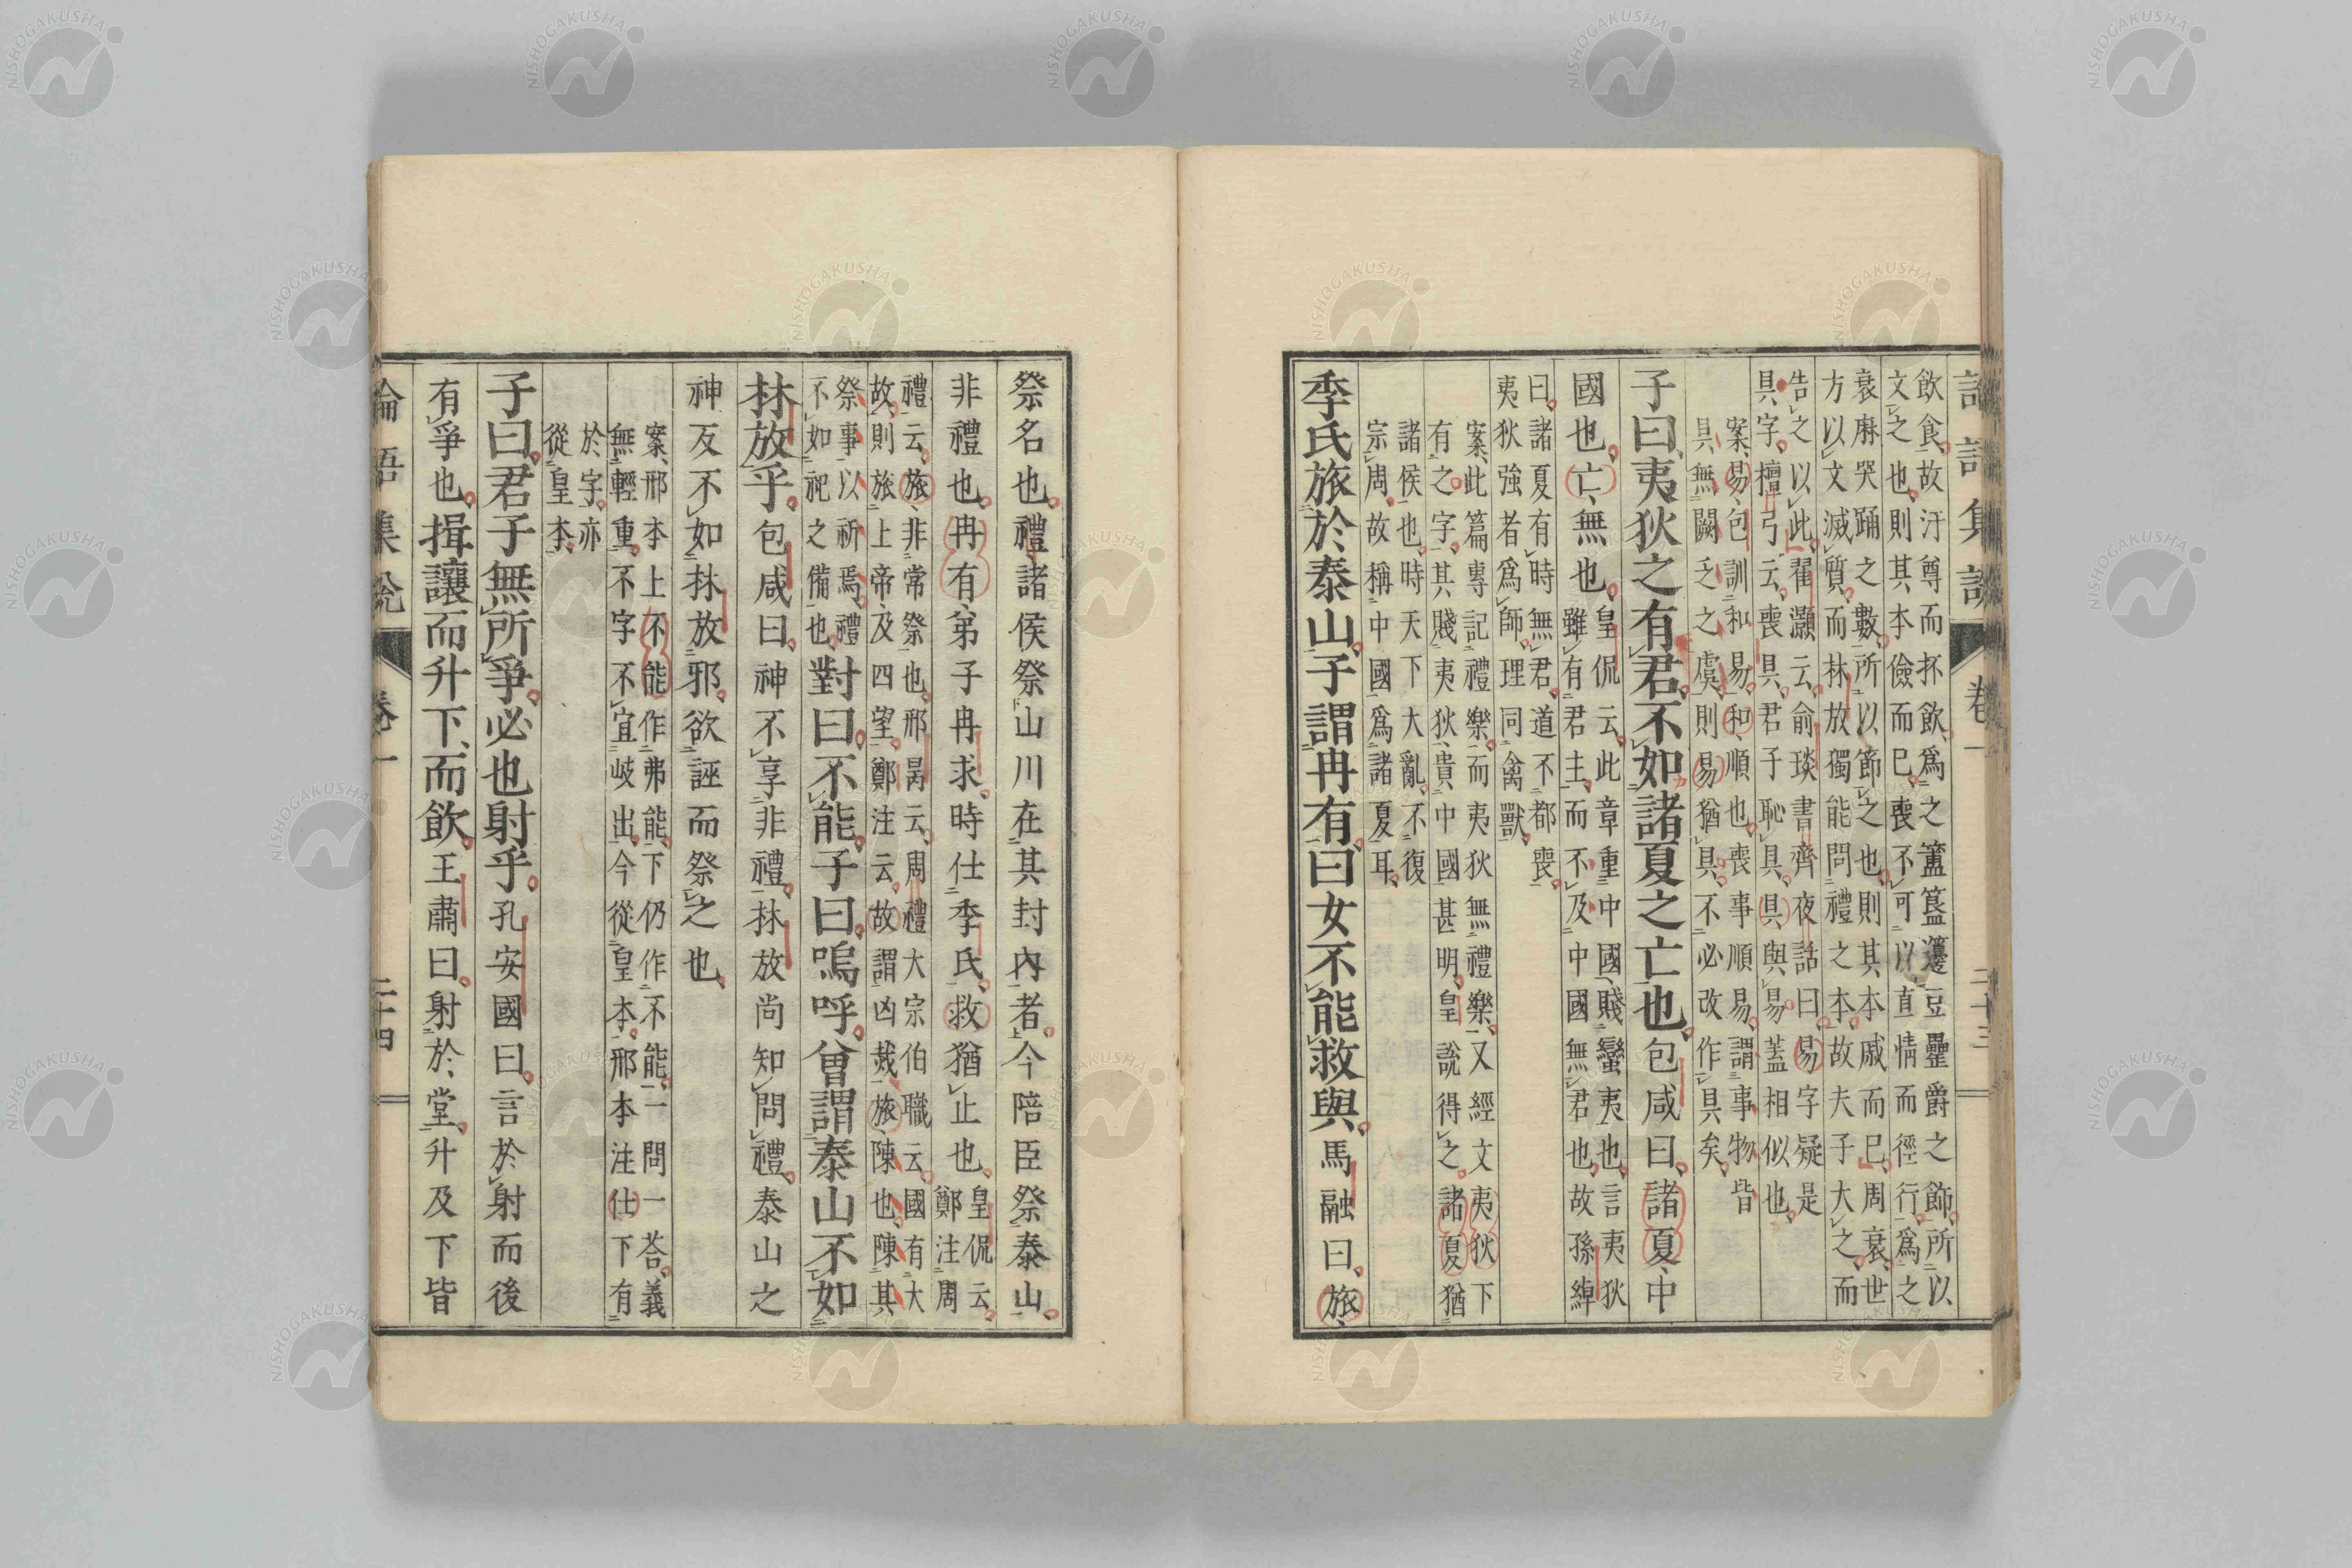 論語集說 卷一 二十三
飲食故汙尊而抔飲爲之簠簋籩豆罍爵之飾所以
文之也則其本儉而已喪不可以直情而徑行爲之
衰麻哭踊之數所以節之也則其本戚而已周衰世
方以文滅質而林放獨能問禮之本故夫子大之而
告之以此翟灝云俞琰書齋夜話曰易字疑是
具字檀弓云喪具君子恥具具與易蓋相似也
案易包訓和易和順也喪事順易謂事物皆
具無闕乏之虞則易猶具不必改作具矣
子曰夷狄之有君不如諸夏之亡也包咸曰諸夏中
國也亡無也
皇侃云此章重中國賤蠻夷也言夷狄
雖有君主而不及中國無君也故孫綽
曰諸夏有時無君道不都喪
夷狄強者爲師理同禽獸
案此篇專記禮樂而夷狄無禮樂又經文夷狄下
有之字其賤夷狄貴中國甚明皇說得之諸夏猶
諸侯也時天下大亂不復
宗周故稱中國爲諸夏耳
季氏旅於泰山子謂冉有曰女不能救與馬融曰旅
祭名也禮諸侯祭山川在其封內者今陪臣祭泰山
非禮也冉有弟子冉求時仕季氏救猶止也
皇侃云
鄭注周
禮云旅非常祭也邢昺云周禮大宗伯職云國有大
故則旅上帝及四望鄭注云故謂凶烖旅陳也陳其
祭事以祈焉禮
不如祀之備也
對曰不能子曰嗚呼曾謂泰山不如
林放乎包咸曰神不享非禮林放尚知問禮泰山之
神反不如林放邪欲誣而祭之也
案邢本上不能作弗能下仍作不能一問一荅義
無輕重不字不宜岐出今從皇本邢本注仕下有
於字亦
從皇本
子曰君子無所爭必也射乎孔安國曰言於射而後
有爭也揖讓而升下而飲王肅曰射於堂升及下皆
論語集說 卷一 二十四